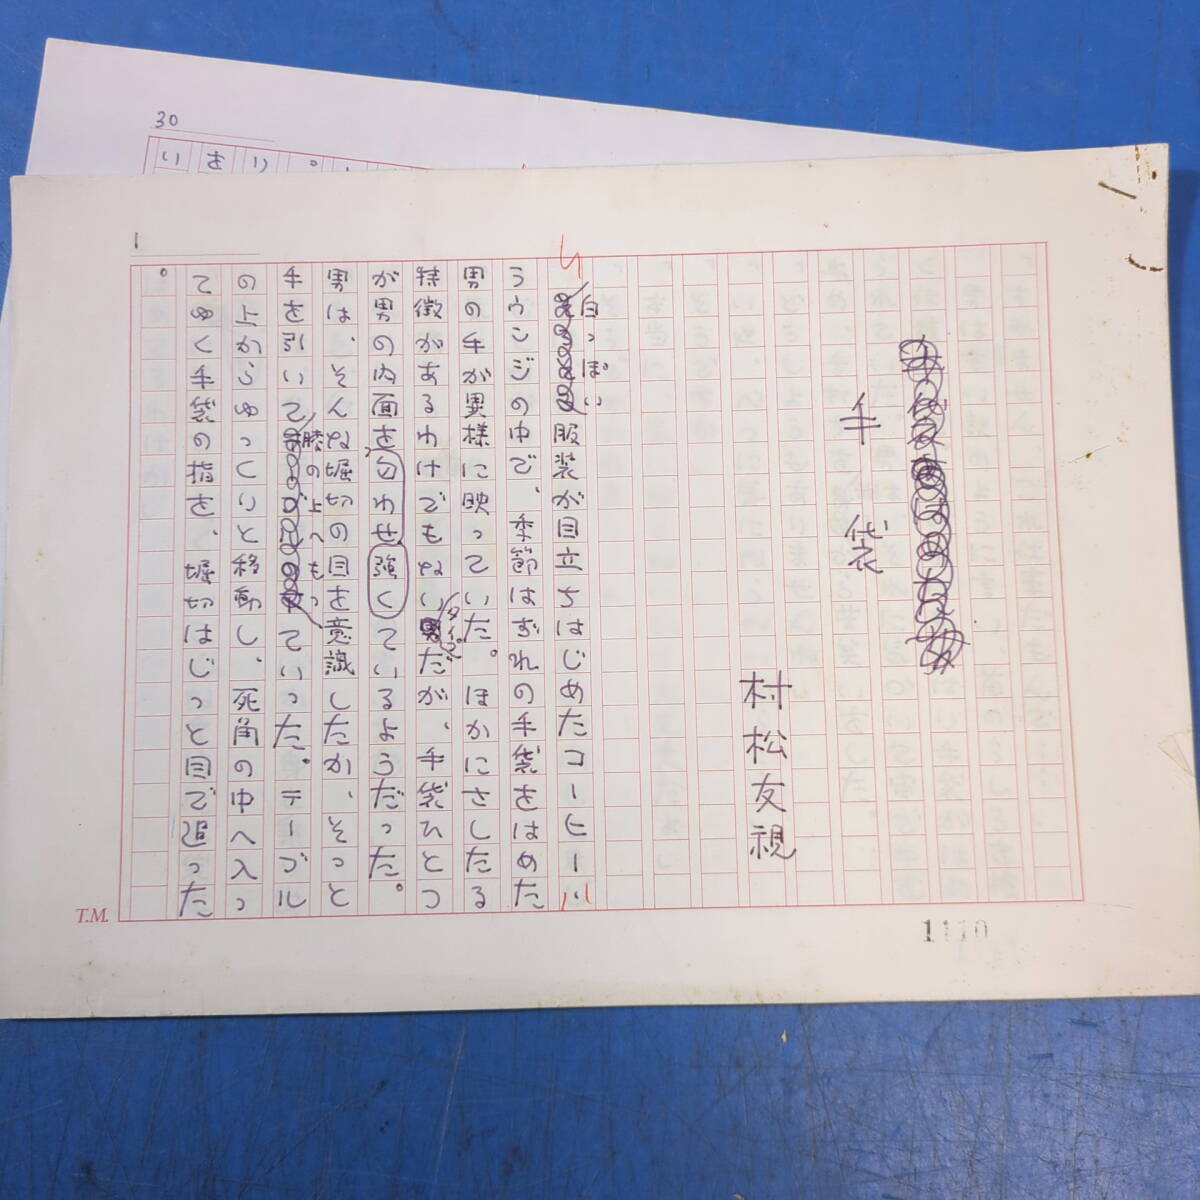 手袋
村松友視
白っぽい服装が目立ちはじめたコーヒー
ラウンジの中で、季節はずれの手袋をはめた
男の手が異様に映っていた。ほかにさしたる
特徴があるわけでもないタイプだが、手袋ひとつ
が男の内面を強く匂わせているようだった。
男は、そんな堀切の目を意識したか、そっと
手を引いて膝の上へもっていった。テーブル
の上からゆっくりと移動し、死角の中へ入っ
てゆく手袋の指を、堀切はじっと目で追った
。
1
T.M.
1110
30
いをり。